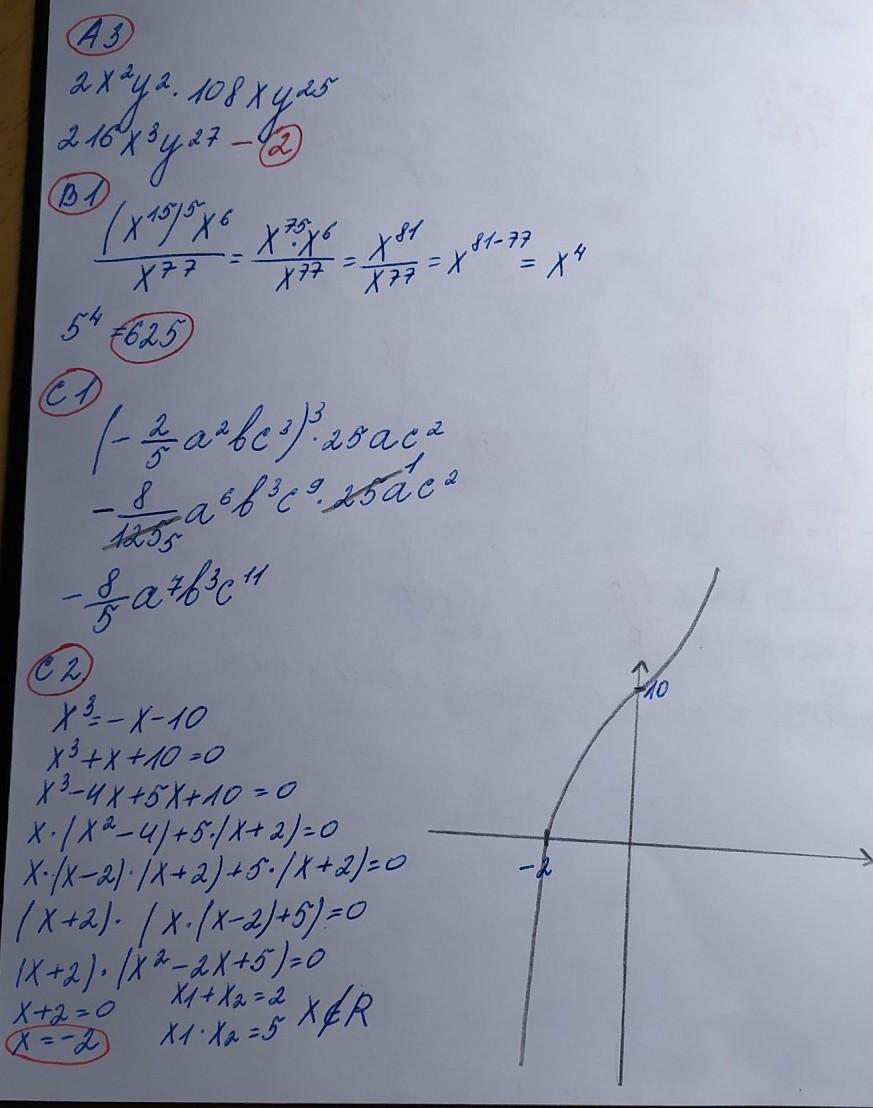 A3
2x²y² · 108xy²⁵
216x³y²⁷ - 2
B1
(x¹⁵)⁵x⁶/x⁷⁷ = x⁷⁵·x⁶/x⁷⁷ = x⁸¹/x⁷⁷ = x⁸¹⁻⁷⁷ = x⁴
5⁴ = 625
C1
(-2/5 a²bc³)³ · 25ac²
-8/125 5 a⁶b³c⁹ · 25a¹c²
-8/5 a⁷b³c¹¹
C2
x³ = -x-10
x³+x+10=0
x³-4x+5x+10=0
x·(x²-4)+5·(x+2)=0
x·(x-2)·(x+2)+5·(x+2)=0
(x+2)·(x·(x-2)+5)=0
(x+2)·(x²-2x+5)=0
x+2=0 x1+x2=2
x=-2 x1·x2=5 x∉R
10
-2